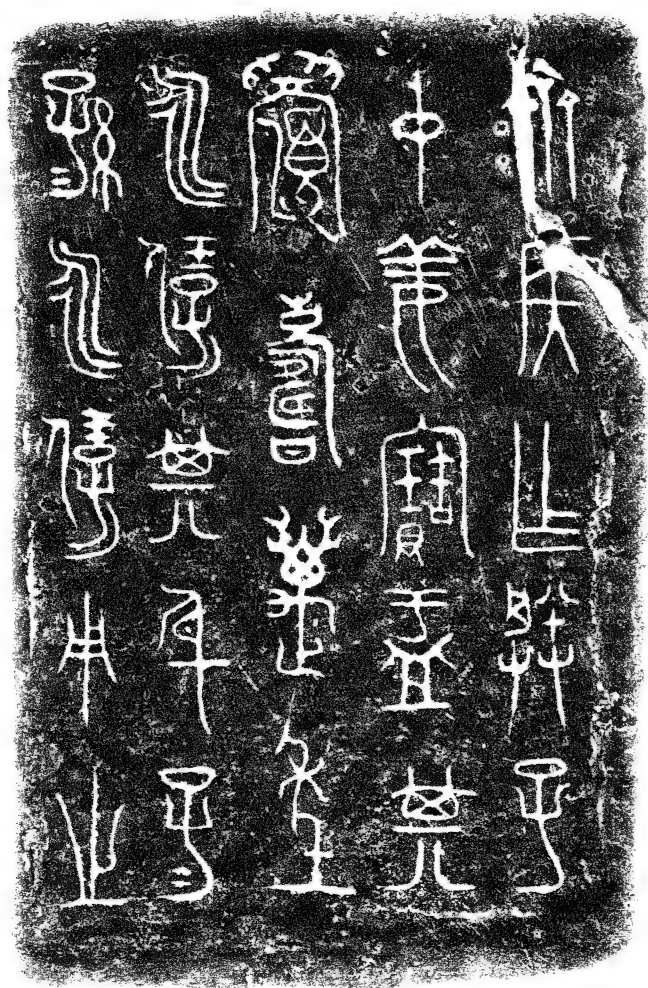 齊侯乍朕子
中姜寶盂其
眉壽萬年
永保其身子=
孫=永保用之